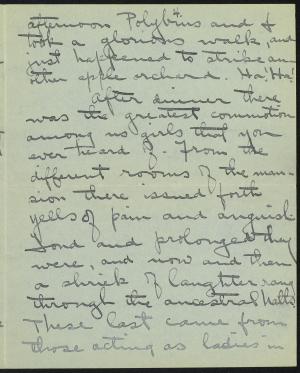 afternoon Polybius and I
took a glorious walk, and
just happened to strike an-
other apple orchard. Ha! Ha!
After dinner there
was the greatest commotion
among us girls that you
ever heard of. From the
different rooms of the man-
sion there issued forth
yells of pain and anguish
Loud and prolonged they
were, and now and then
a shriek of laughter rang
through the ancestral halls.
These last came from
those acting as ladies in